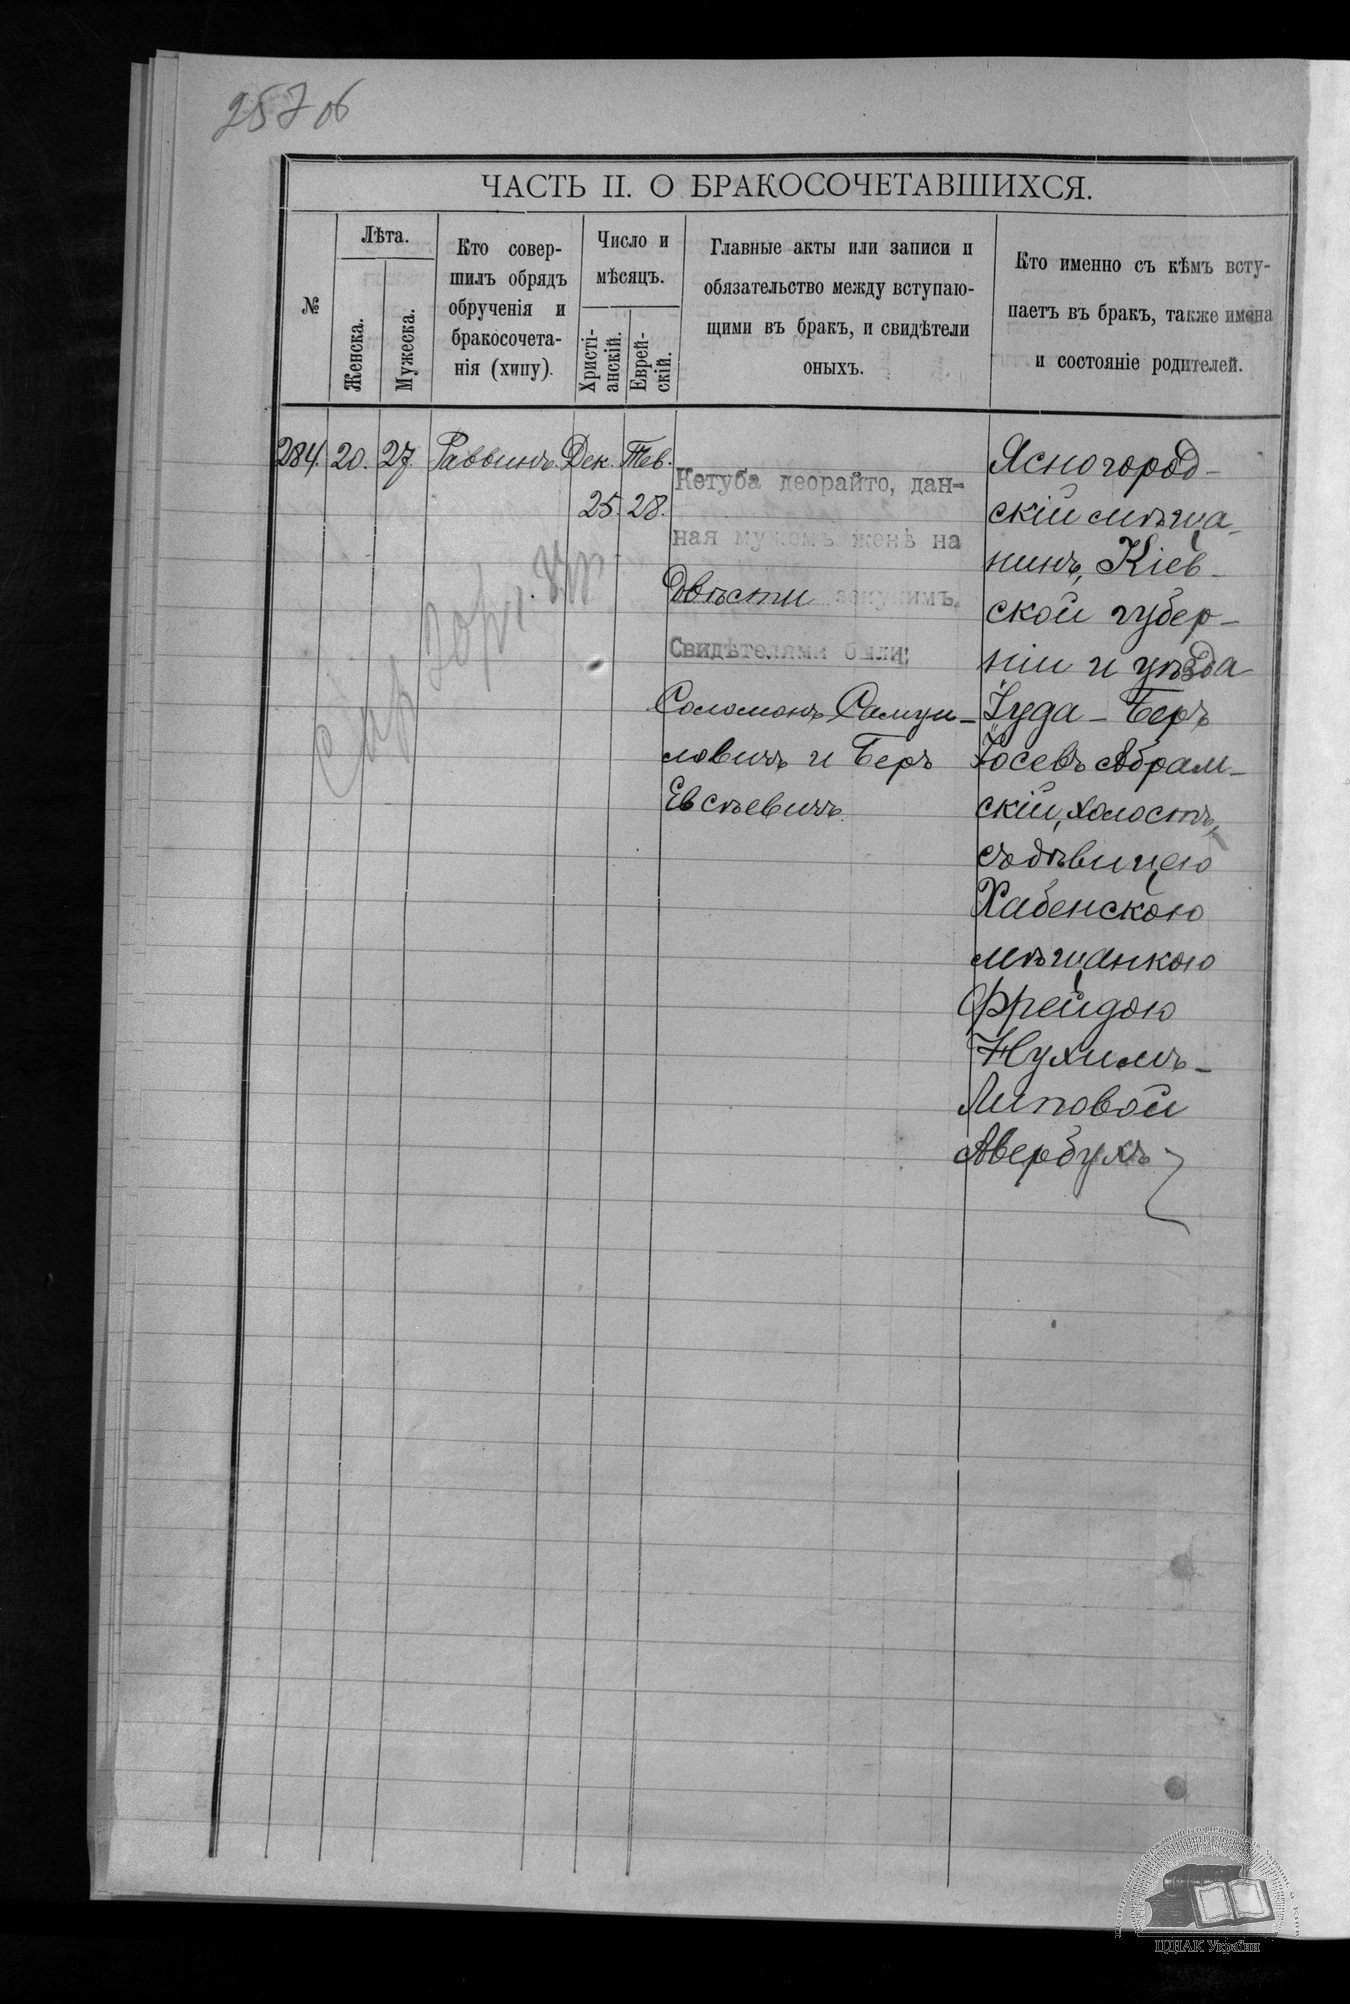 257 об
ЧАСТЬ II. О БРАКОСОЧЕТАВШИХСЯ.
№
Лѣта.
Женска.
Мужеска.
Кто совер-
шилъ обрядъ
обрученія и
бракосочета-
нія (хипу).
Число и
мѣсяцъ.
Христі-
анскій.
Еврей-
скій.
Главные акты или записи и
обязательство между вступаю-
щими въ бракъ, и свидѣтели
оныхъ.
Кто именно съ кѣмъ всту-
паетъ въ бракъ, также имена
и состояніе родителей.
284. 20. 27. Раввинъ. Дек. Тев.
25. 28.
Кетуба деорайто, дан-
ная мужемъ женѣ на
Двѣсти зекукимъ.
Свидѣтелями были:
Соломонъ Самуи-
ловичъ и Беръ
Евсѣевичъ.
Ясногород-
скій мѣща-
нинъ, Кіев-
ской губер-
ніи и уѣзда
Іуда-Беръ
Іосевъ Абрам-
скій, холостъ,
съ дѣвицею
Хабенскою
мѣщанкою
Фрейдою
Нухимъ-
Липовой
Авербухъ
ЦДІАК України